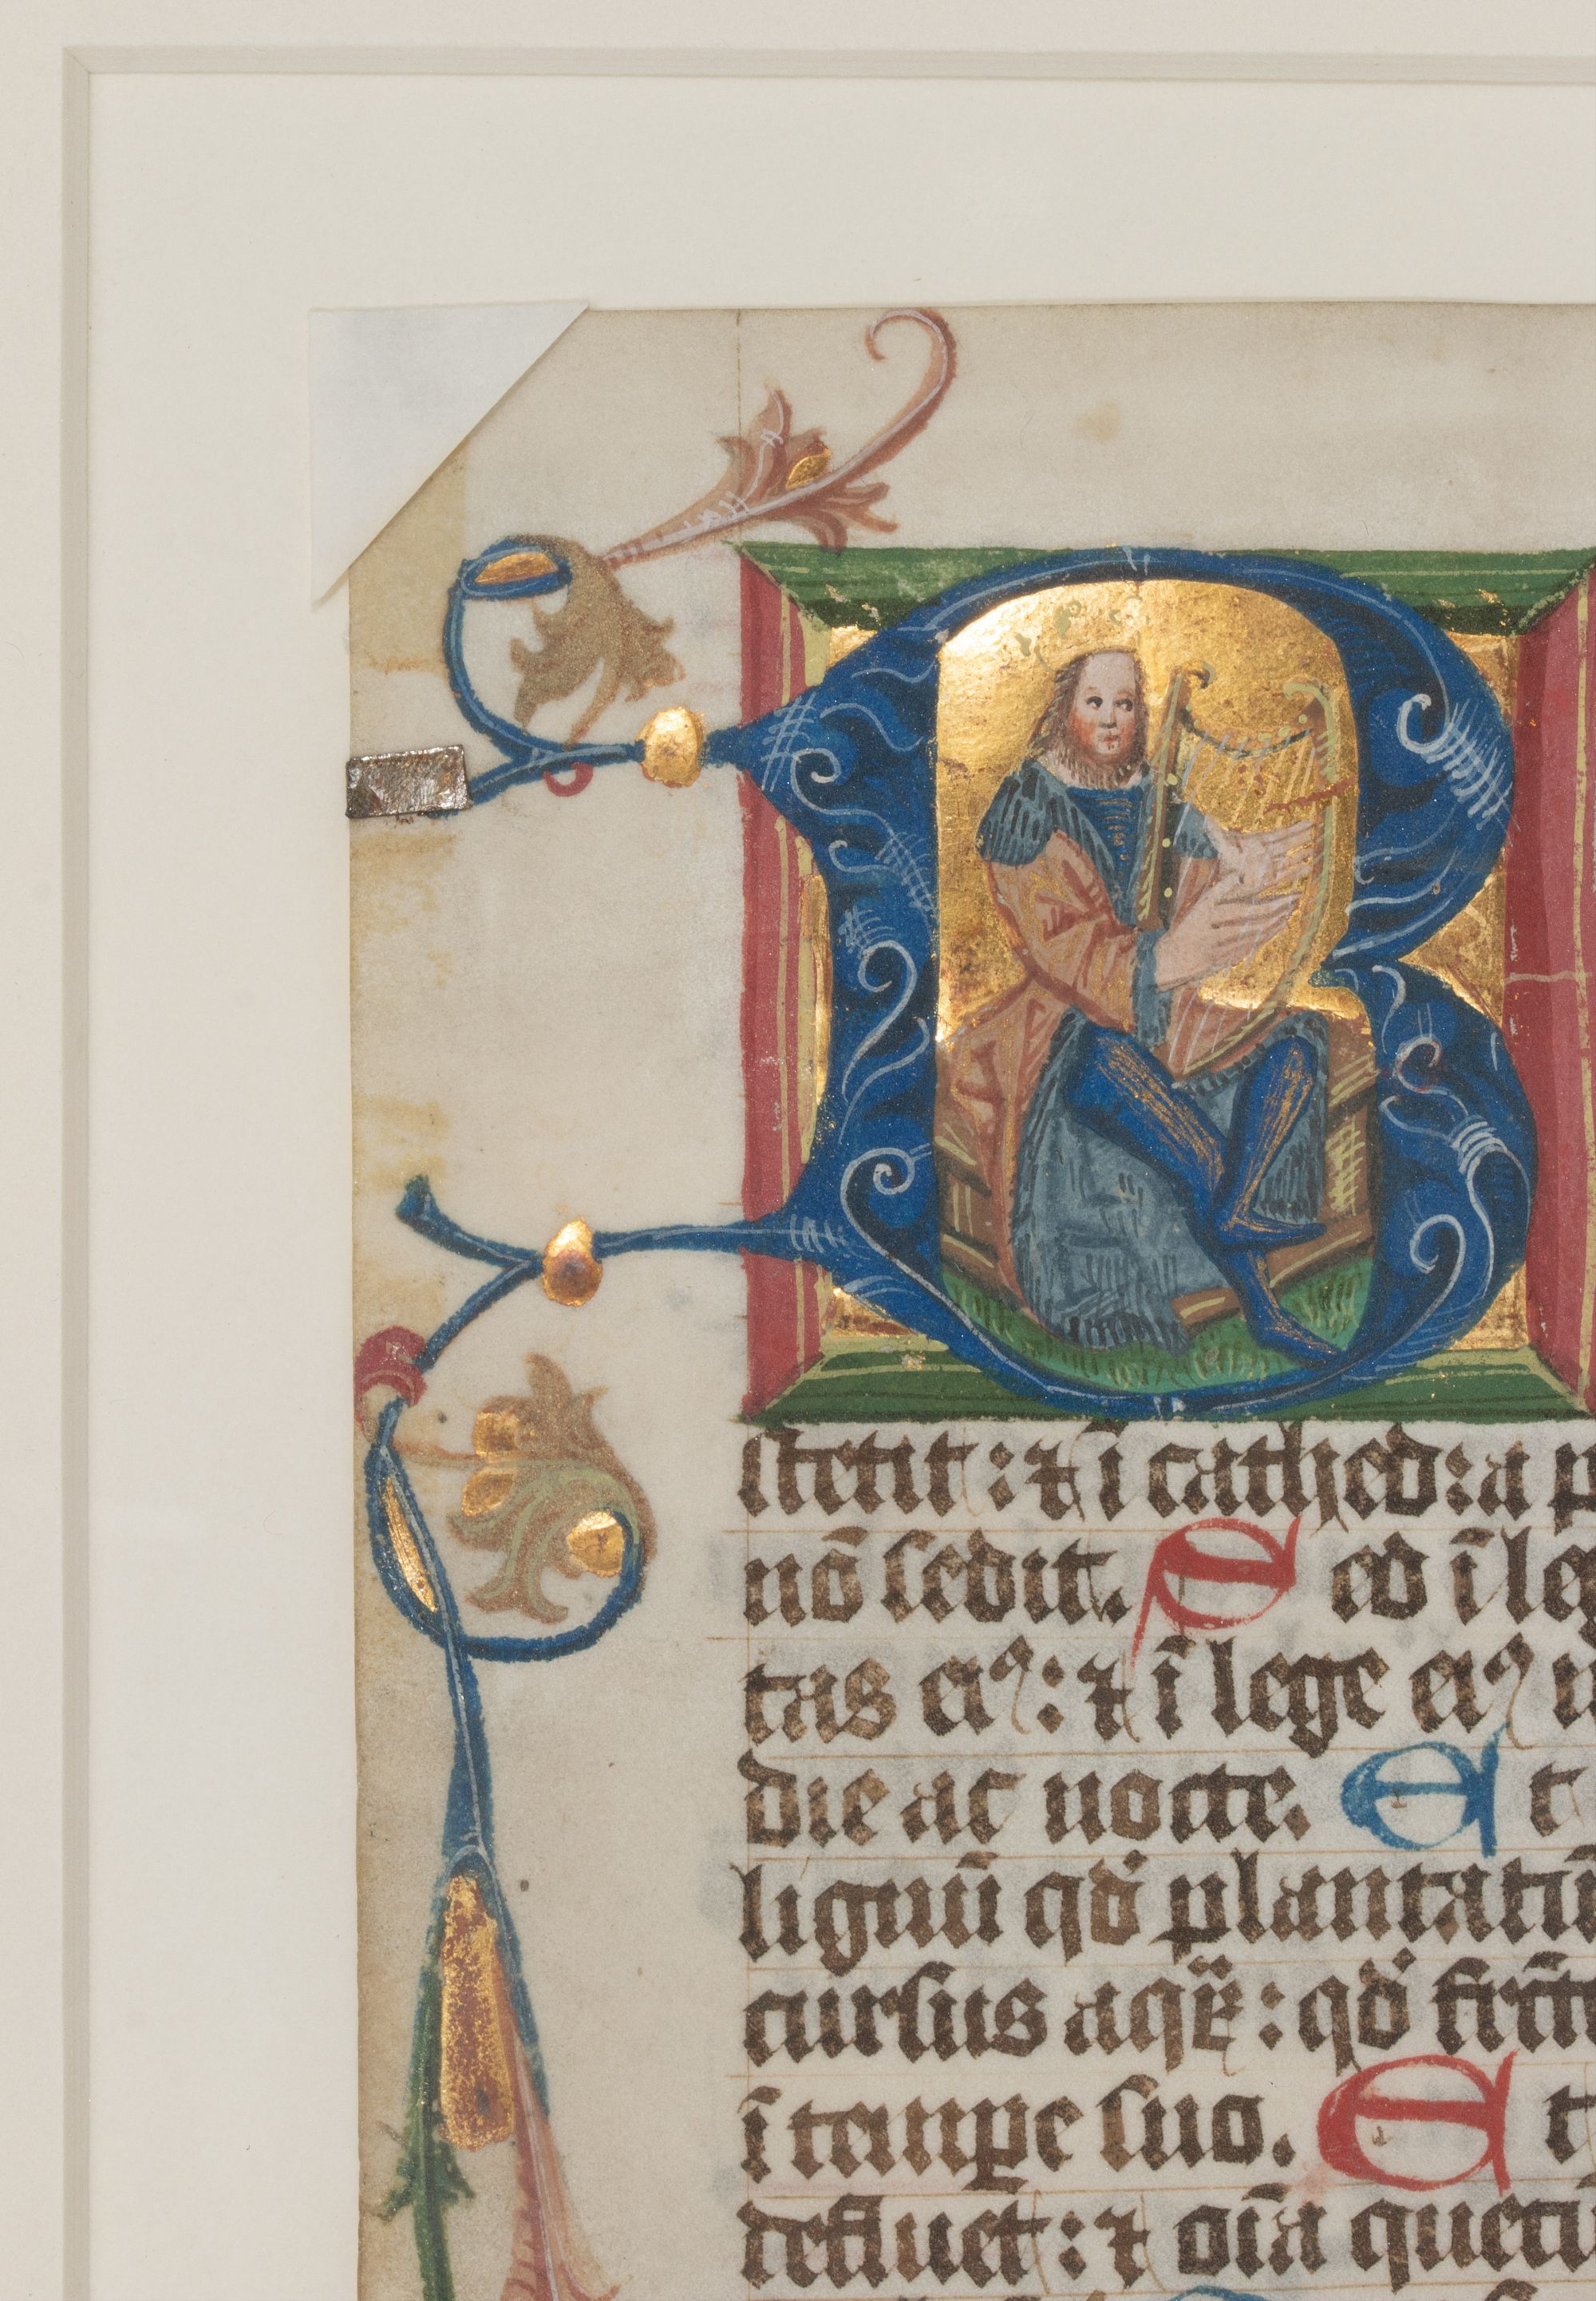 B
stetit : ⁊ ī cathedra p
nō sedit. S ed ī le
tas eiꝰ : ⁊ ī lege eiꝰ
die ac nocte. E t
lignū qd̕ plantatū
cursus aqꝝ : qd̕
ī temꝑe suo. E t
defluet : ⁊ oīa